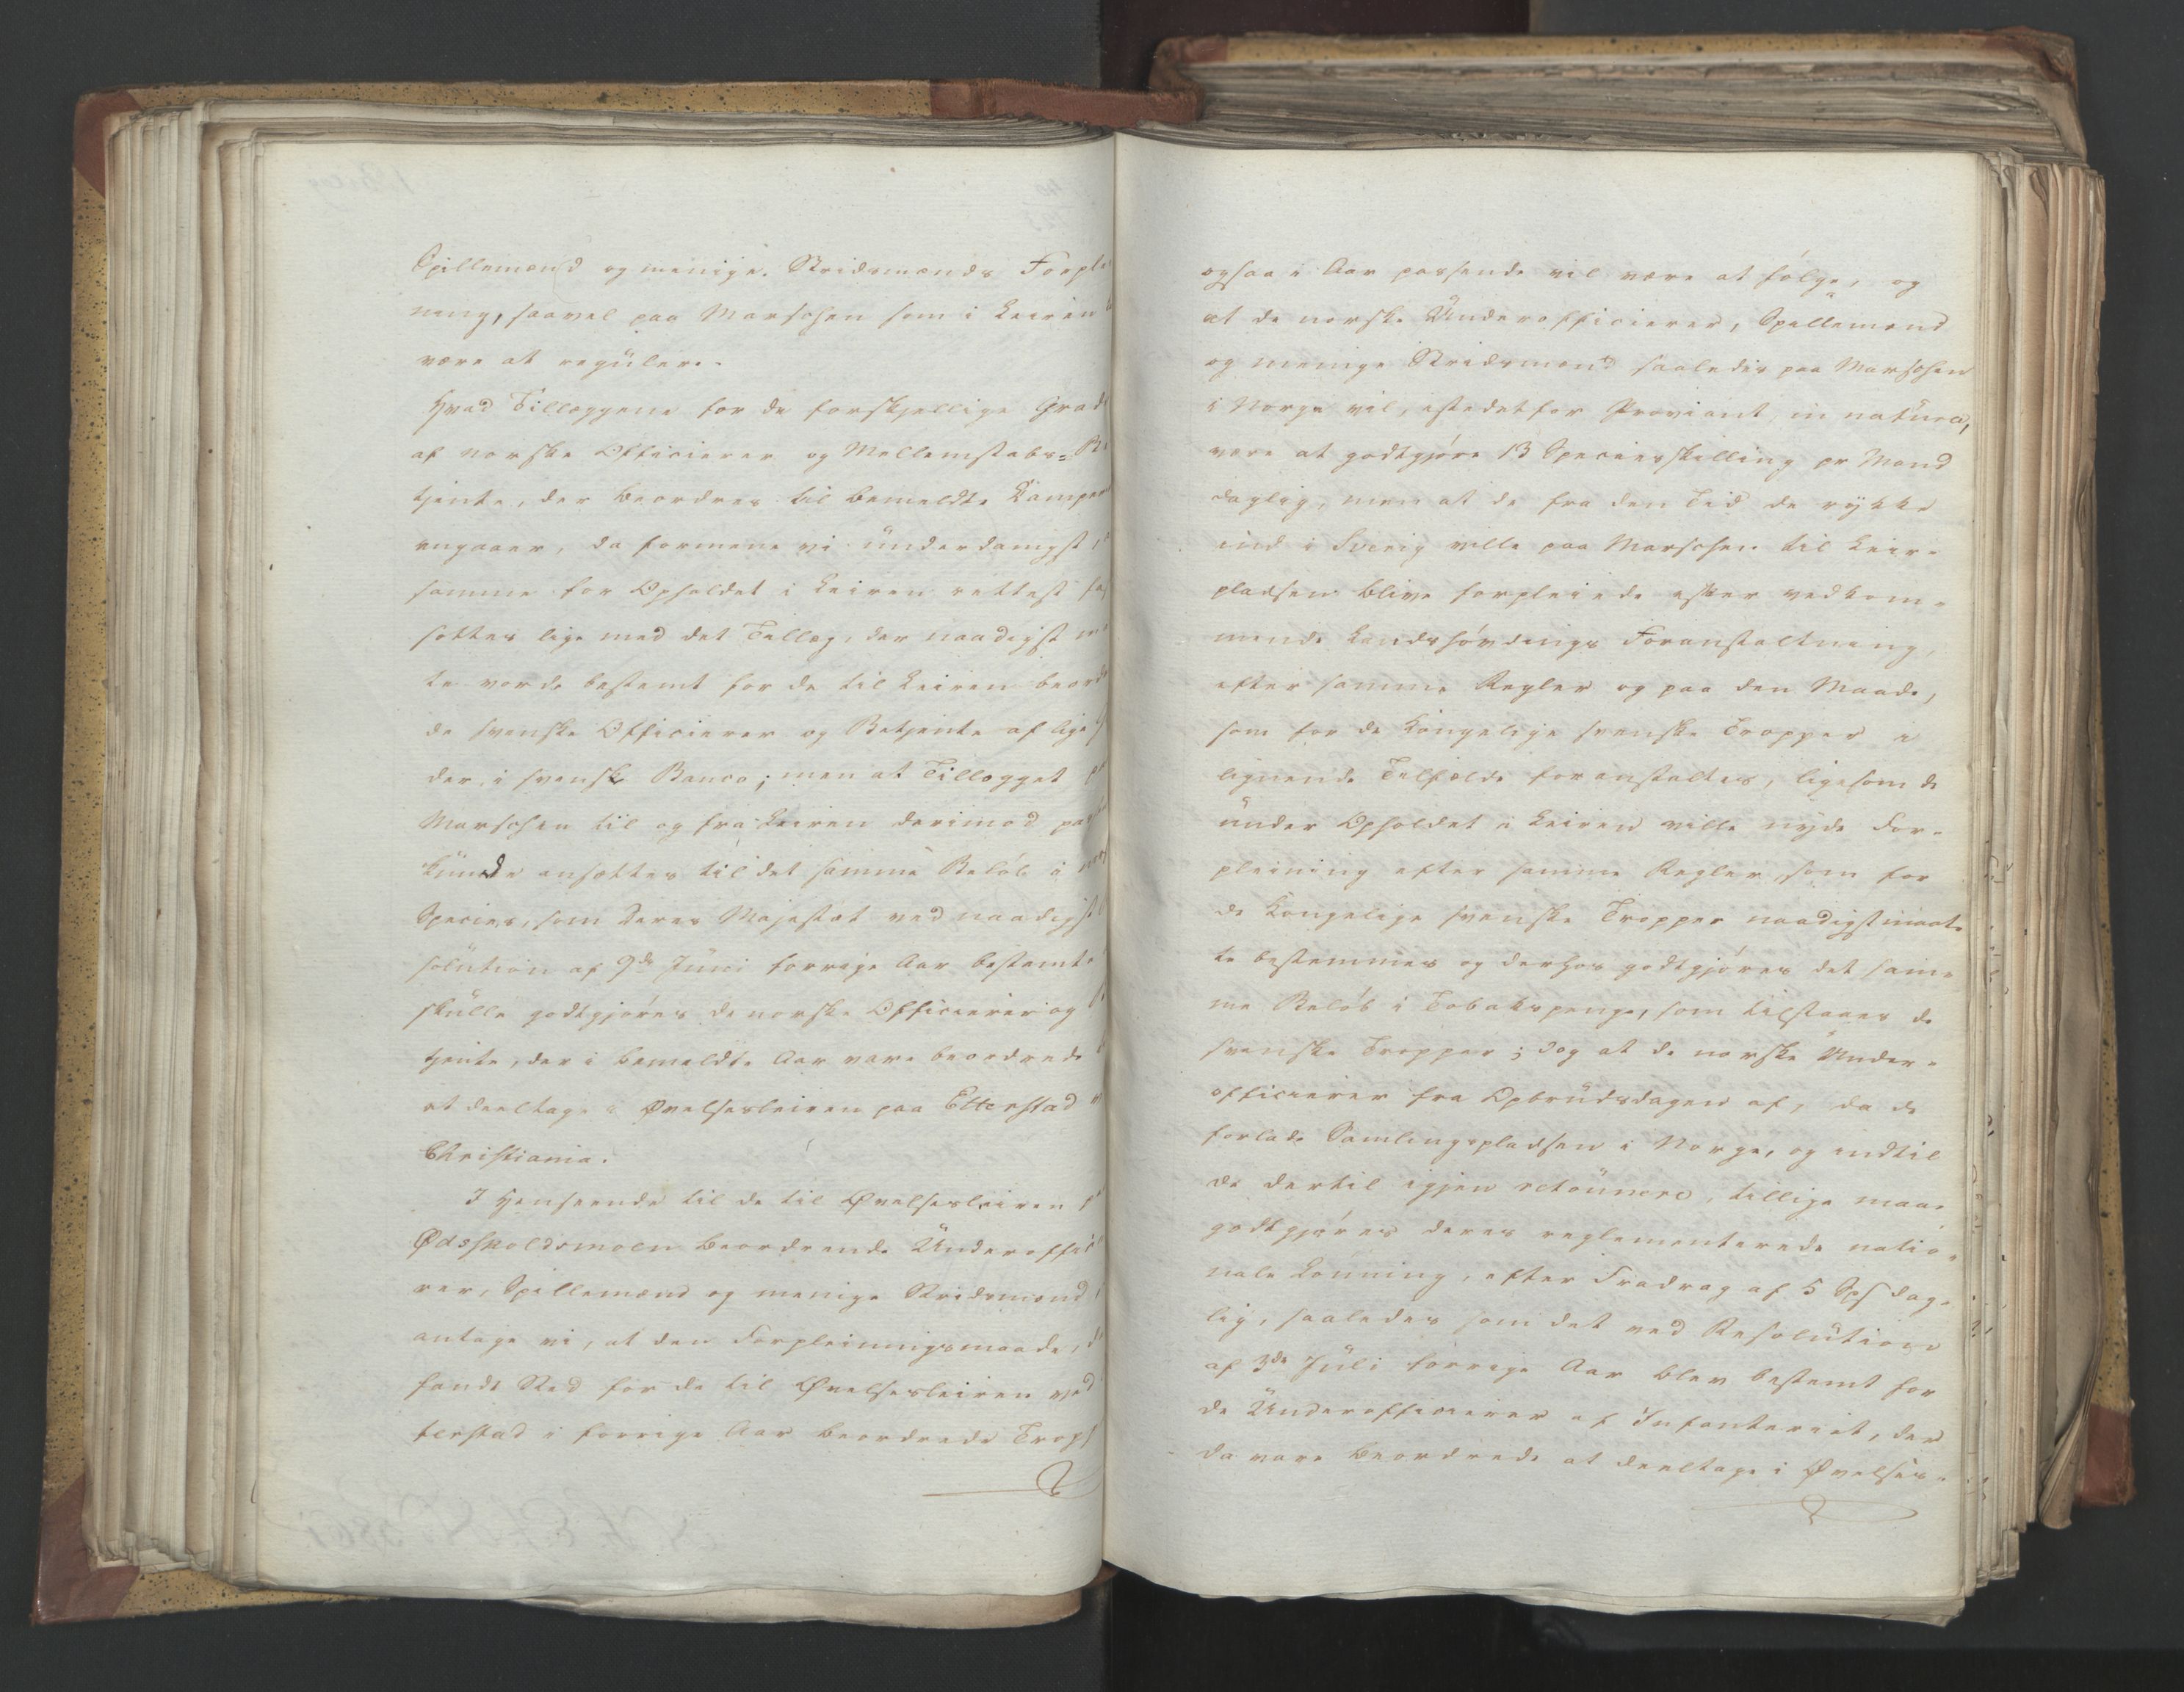 Spillemænd og menige Stridsmænds Forplei
ning, saavel paa Marschen som i Leiren
være at regulere.
Hvad Tillæggene for de forskjellige Grade
af norske Officierer og Mellemstabs-Be
tjente, der beordres til bemeldte Campe
angaaer, da formene vi underdanigst,
samme for Opholdet i Leiren rettest
sættes lige med det Tillæg, der naadigst
te vorde bestemt for de til Leiren beord
de svenske Officierer og Betjente af lige
der, i svensk Banco; men at Tillægget
Marschen til og fra Leiren derimod
kunde ansættes til det samme Beløb i
Species, som Deres Majestæt ved naadigst
solution af 9de Juni forrige Aar bestemte
skulle godtgjøres de norske Officierer og
tjente, der i bemeldte Aar vare beordrede
at deeltage i Øvelsesleiren paa Etterstad
Christiania.
I Henseende til de til Øvelsesleiren
Ødsskoldsmoen beordrende Underoffici
rer, Spillemænd og menige Stridsmænd
antage vi, at den Forpleiningsmaade,
fandt Sted for de til Øvelsesleiren ved
terstad i forrige Aar beordrede Trop
ogsaa i Aar passende vil være at følge, og
at de norske Underofficierer, Spillemænd
og menige Stridsmænd saaledes paa Marschen
i Norge vil, istedetfor Proviant in natura,
være at godtgjøre 13 Speciesskilling pr Mand
daglig, men at de fra den Tid de rykke
ind i Sverig ville paa Marschen til Leir-
pladsen blive forpleiede efter vedkom-
mende Landshøvdings Foranstaltning,
efter samme Regler og paa den Maade,
som for de Kongelige svenske Tropper i
lignende Tilfælde foranstaltes, ligesom de
under Opholdet i Leiren ville nyde For-
pleining efter samme Regler, som for
de Kongelige svenske Tropper naadigst maat-
te bestemmes og derhos godtgjøres det sam-
me Beløb i Tobakspenge, som tilstaaes de
svenske Tropper; dog at de norske Under-
officierer fra Opbrudsdagen af, da de
forlade Samlingspladsen i Norge, og indtil
de dertil igjen retournere, tillige maae
godtgjøres deres reglementerede natio-
nale Lønning, efter Fradrag af 5 Sps dag-
lig, saaledes som det ved Resolution
af 3de Juli forrige Aar blev bestemt for
de Underofficierer af Infanteriet, der
da vare beordrede at deeltage i Øvelses-